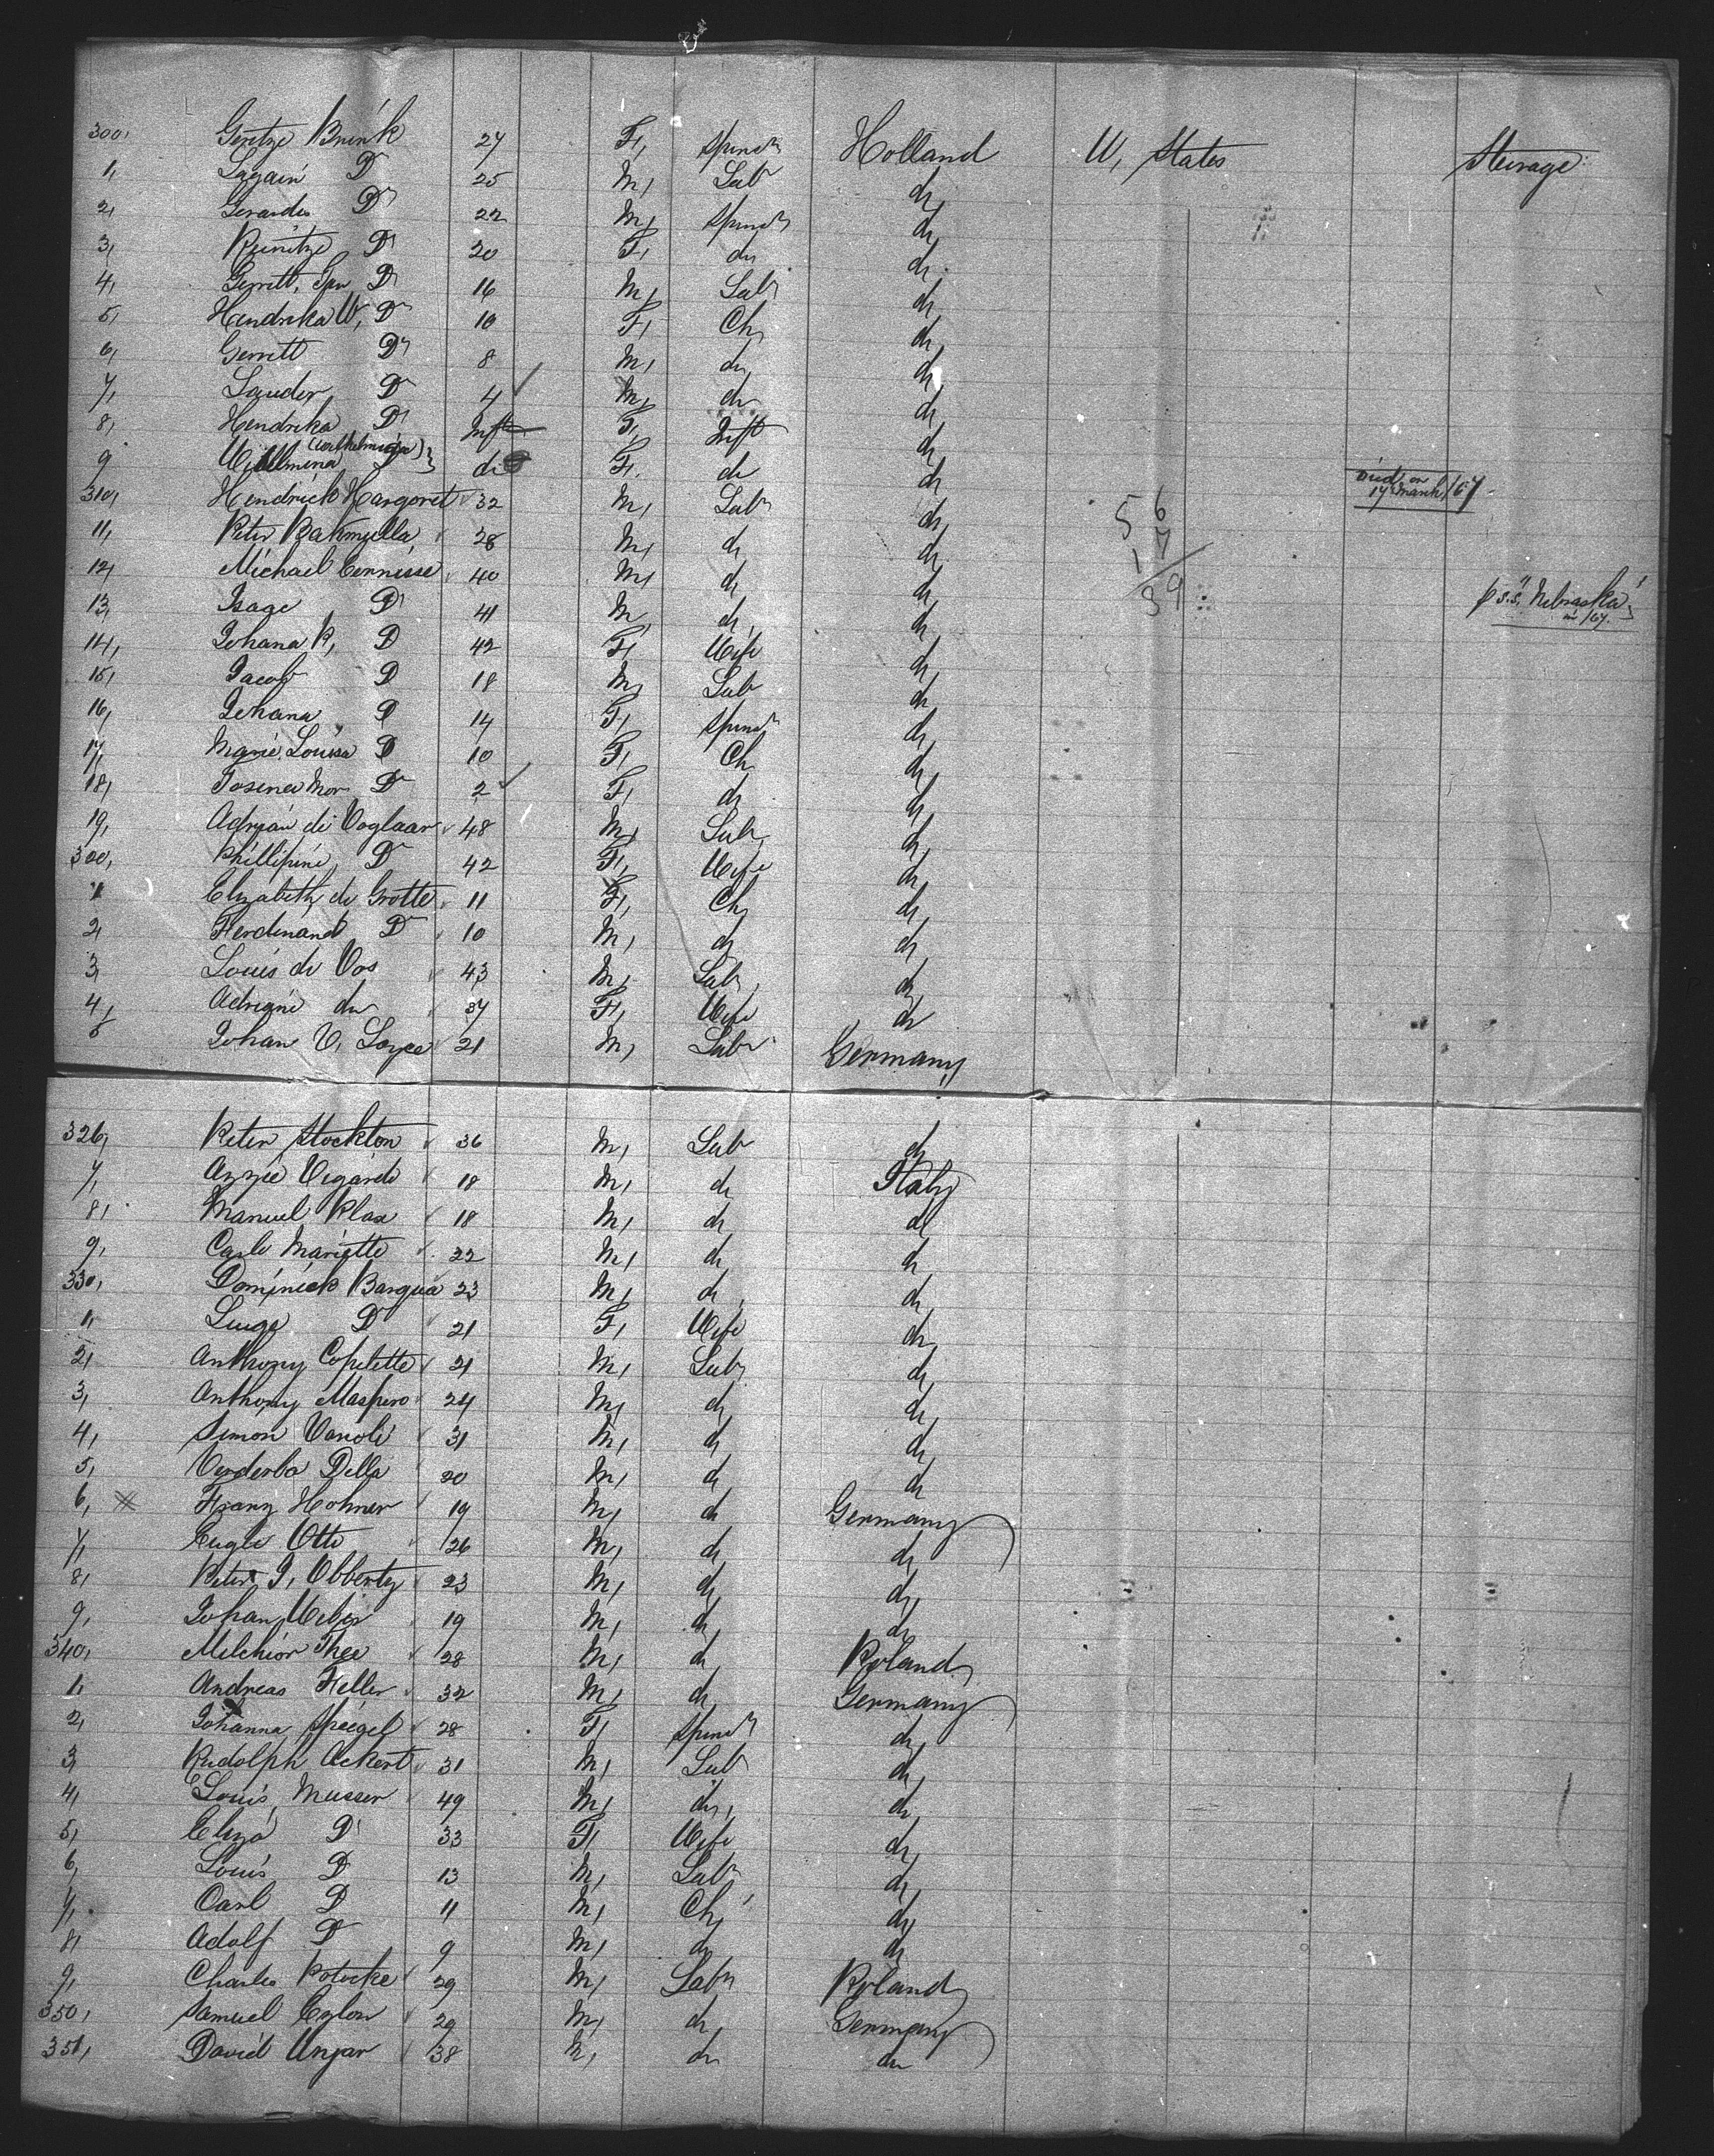 300, Geritze Brink 27 F, Spinr Holland U, States Steerage
1, D 25 M, Labr do,
2, Gerardus D 22 M, Spinr do,
3, D 20 F, do do,
4, Gerritt, Jan D 16 M, Labr do,
5, Hendrika W, D 10 F, Ch, do,
6, Gerritt D 8 M, do, do,
7, Lander D 4 M, do do,
8, Hendrika D Inft F, Inft do,
9 Willmina (Wilhelmina) D do F. do do
died on 17 March/67
310, Hendrick Hargoret 32 M, Labr do,
5 6
11, Peter Bakmylla 28 M, do do,
7
12, Michael Cernisse 40 M, do, do,
1/39
p "S.S." Nebraska in /67.
13, Isage D 41 M, do, do,
14, Johana P, D 42 F, Wife do,
15, Jacob D 18 M, Lab do,
16, Johana D 14 F, Spinr do,
17, Marie Louisa D 10 F, Ch do,
18, Mor D 2 F, do do,
19, Adrian de Voglaar 48 M, Lab, do,
300, Phillipine D 42 F, Wife do,
1 Elizabeth de Grotte 11 F, Ch, do,
2, Ferdinand D 10 M, do do,
3, Louis de Vos 43 M, Lab, do,
4, Adriane do 37 F, Wife do
5 Johan V. Loyce 21 M, Labr Germany
326, Peter Stockton 36 M, Lab do,
7, Azzie Vigarde 18 M, do Italy
8, Manuel Plax 18 M, do do
9, Carlo Mariette 22 M, do do
330, Dominick Barqua 23 M, do, do,
1, Luiga D 21 F, Wife do,
2, Anthony Copelette 21 M, Lab, do,
3, Anthony Maspero 24 M, do do,
4, Simon Vanoli 31 M, do do,
5, Verderba Della 20 M, do do
6, Franz Hohner 19 M, do Germany
7, Eugle Otto 26 M, do do,
8, Peter J, Obberty 23 M, do do,
9, Johan Weber 19 M, do, do
340, Melchior Thee 28 M, do Poland
1, Andreas Feller 32 M, do Germany
2, Johanna Speegel 28 F, Spinr do,
3, Rudolph Ackert 31 M, Lab do,
4, Louis Musser 49 M, do, do
5, Eliza D 33 F, Wife do,
6, Louis D 13 M, Lab do,
7, Carl D 11 M, Ch, do,
8, Adolf D 9 M, do do
9, Charles Potocke 29 M, Labr Poland
350, Samuel Cylon 29 M, do, Germany
351, David Ungar 38 M, do do